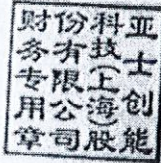 亚士创能
科技(上海)股
份有限公司
财务专用章